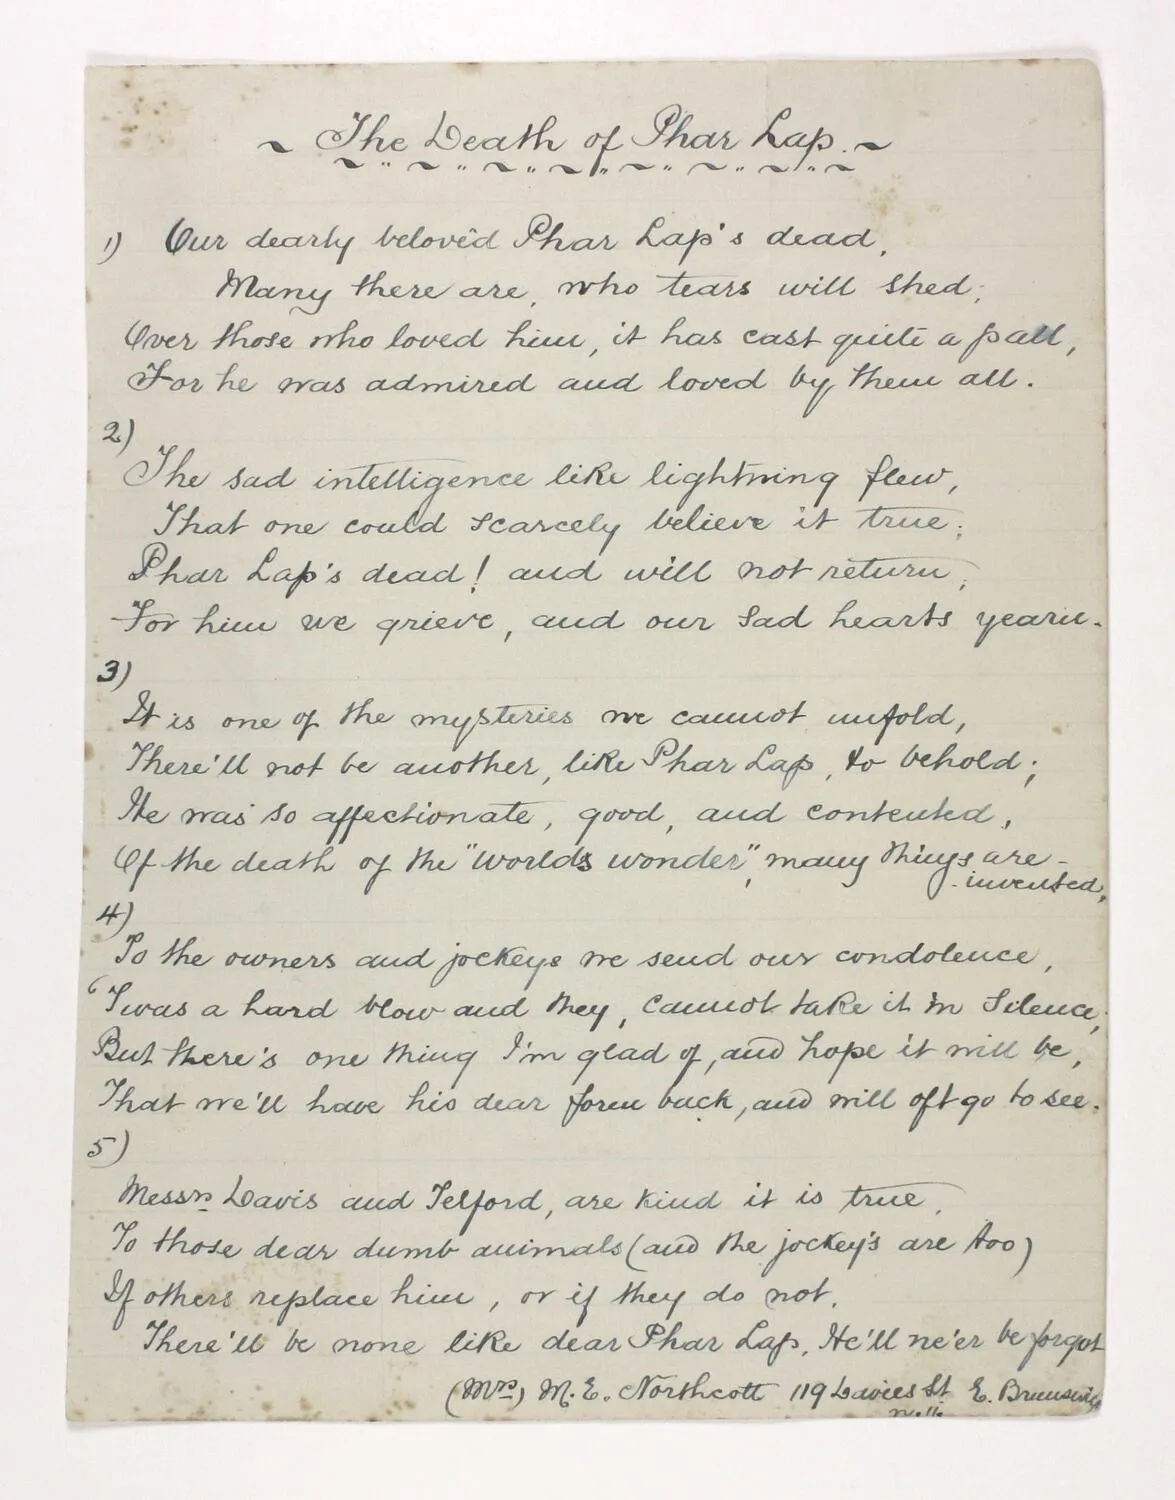 ~ The Death of Phar Lap. ~
1) Our dearly beloved Phar Lap's dead,
Many there are, who tears will shed;
Over those who loved him, it has cast quite a pall,
For he was admired and loved by them all.
2)
The sad intelligence like lightning flew,
That one could scarcely believe it true;
Phar Lap's dead! and will not return,
For him we grieve, and our sad hearts yearn.
3)
It is one of the mysteries we cannot unfold,
There'll not be another, like Phar Lap, to behold;
He was so affectionate, good, and contented,
Of the death of the "worlds wonder", many things are -
- invented,
4)
To the owners and jockeys we send our condolence,
'Twas a hard blow and they, cannot take it in silence;
But there's one thing I'm glad of, and hope it will be,
That we'll have his dear form back, and will oft go to see.
5)
Messrs Davis and Telford, are kind it is true,
To those dear dumb animals (and the jockey's are too)
If others replace him, or if they do not,
There'll be none like dear Phar Lap, He'll ne'er be forgot
(Mrs) M. E. Northcott 119 Davies St E. Brunswick